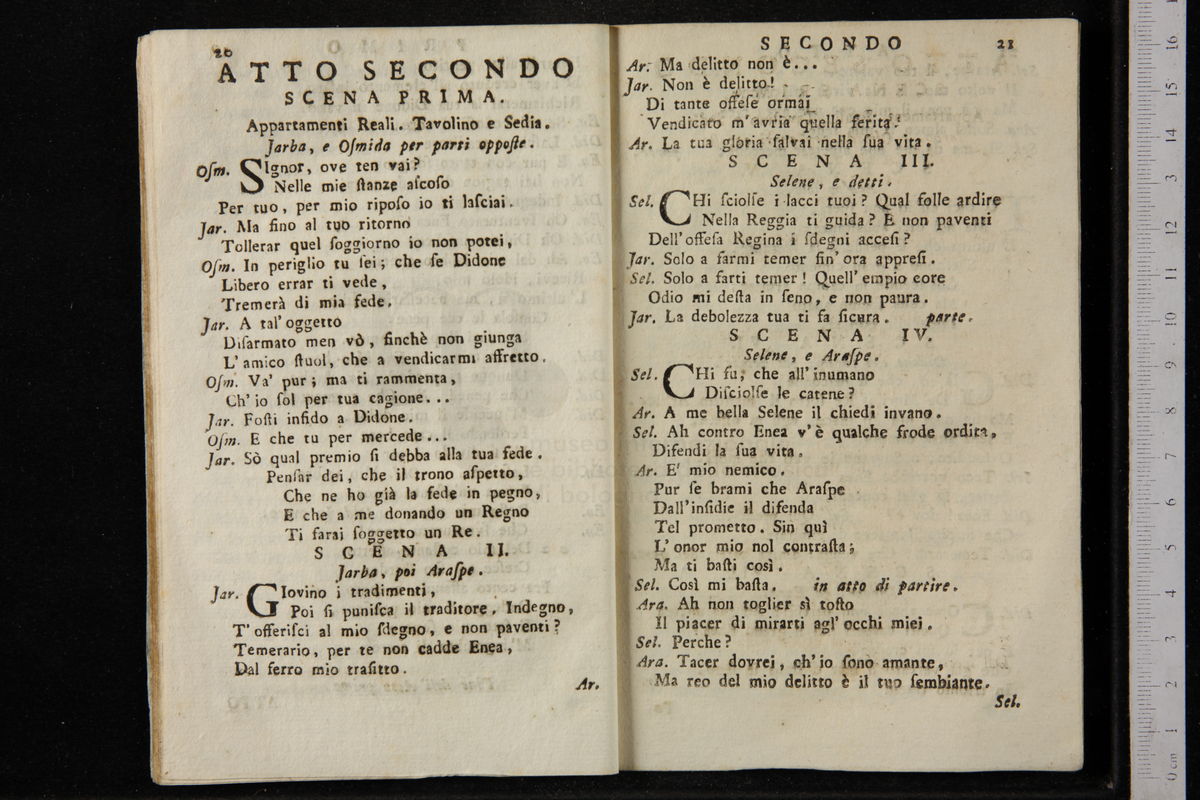 20
ATTO SECONDO
SCENA PRIMA.
Appartamenti Reali. Tavolino e Sedia.
Jarba, e Oſmida per parti oppoſte.
Oſm. SIgnor, ove ten vai?
Nelle mie ſtanze aſcoſo
Per tuo, per mio ripoſo io ti laſciai.
Jar. Ma fino al tuo ritorno
Tollerar quel ſoggiorno io non potei,
Oſm. In periglio tu ſei; che ſe Didone
Libero errar ti vede,
Tremerà di mia fede.
Jar. A tal' oggetto
Diſarmato men vò, finchè non giunga
L' amico ſtuol, che a vendicarmi affretto.
Oſm. Va' pur; ma ti rammenta,
Ch' io ſol per tua cagione...
Jar. Foſti infido a Didone.
Oſm. E che tu per mercede...
Jar. Sò qual premio ſi debba alla tua fede.
Penſar dei, che il trono aſpetto,
Che ne ho già la fede in pegno,
E che a me donando un Regno
Ti farai ſoggetto un Re.
SCENA II.
Jarba, poi Araſpe.
Jar. GIovino i tradimenti,
Poi ſi puniſca il traditore. Indegno,
T' offeriſci al mio ſdegno, e non paventi?
Temerario, per te non cadde Enea,
Dal ferro mio trafitto.
Ar.
SECONDO 21
Ar. Ma delitto non è...
Jar. Non è delitto!
Di tante offeſe ormai
Vendicato m' avria quella ferita.
Ar. La tua gloria ſalvai nella ſua vita.
SCENA III.
Selene, e detti.
Sel. CHi ſciolſe i lacci tuoi? Qual folle ardire
Nella Reggia ti guida? E non paventi
Dell' offeſa Regina i ſdegni acceſi?
Jar. Solo a farmi temer fin' ora appreſi.
Sel. Solo a farti temer! Quell' empio core
Odio mi deſta in ſeno, e non paura.
Jar. La debolezza tua ti fa ſicura. parte.
SCENA IV.
Selene, e Araſpe.
Sel. CHi fu, che all' inumano
Diſciolſe le catene?
Ar. A me bella Selene il chiedi invano.
Sel. Ah contro Enea v' è qualche frode ordita,
Difendi la ſua vita.
Ar. E' mio nemico.
Pur ſe brami che Araſpe
Dall' inſidie il difenda
Tel prometto. Sin quì
L' onor mio nol contraſta;
Ma ti baſti così.
Sel. Così mi baſta. in atto di partire.
Ara. Ah non toglier sì toſto
Il piacer di mirarti agl' occhi miei.
Sel. Perche?
Ara. Tacer dovrei, ch' io ſono amante,
Ma reo del mio delitto è il tuo ſembiante.
Sel.